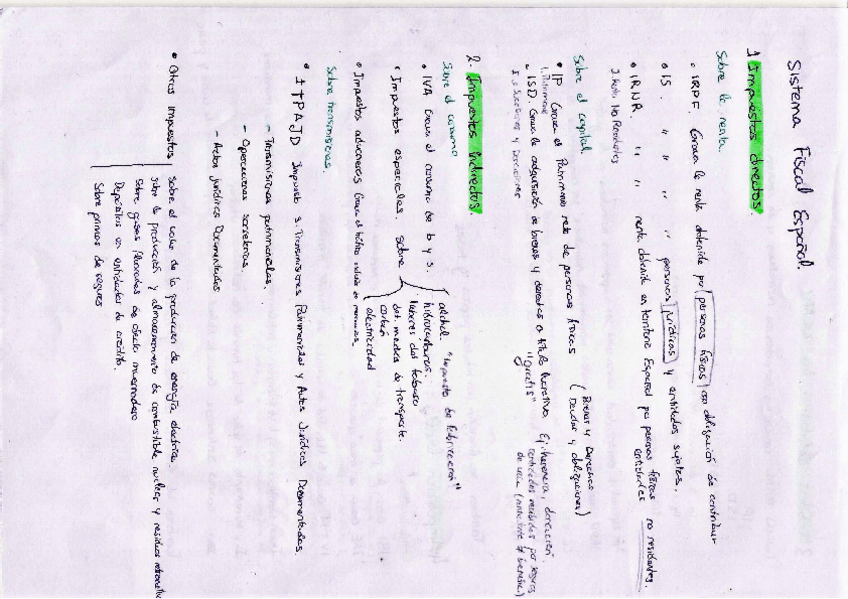 Sistema Fiscal Español
1 Impuestos directos.
Sobre la renta.
• IRPF. Grava la renta obtenida por personas físicas con obligación de contribuir
• IS. " " " " personas jurídicas y entidades sujetas.
• IRNR. " " renta obtenida en territorio Español por personas físicas no residentes.
entidades
I. Renta No Residentes
Sobre el capital.
• IP Grava el Patrimonio neto de personas físicas (Bienes y Derechos
I. Patrimonio (Deudas y obligaciones)
- ISD. Grava la adquisición de bienes y derechos a título lucrativo. Ej: herencia, donación.
I. s. Sucesiones y Donaciones "gratis" cantidades recibidas por seguros
de vida
2. Impuestos Indirectos.
Sobre el consumo
• IVA Grava el consumo de b y s.
• Impuestos especiales. Sobre
alcohol. "Impuesto de fabricación"
hidrocarburos.
labores del tabaco
det. medios de transporte.
carbón
electricidad
• Impuestos aduaneros Grava el tráfico
Sobre transmisiones.
• ITPAJD Impuesto s. Transmisiones Patrimoniales y Actos Jurídicos Documentados.
- Transmisiones patrimoniales.
- Operaciones societarias.
- Actos jurídicos Documentados
• Otros impuestos
Sobre el valor de la producción de energía eléctrica
Sobre la producción y almacenamiento de combustible nuclear y residuos
Sobre gases fluorados de efecto invernadero
Depósitos en entidades de crédito.
Sobre primas de seguros